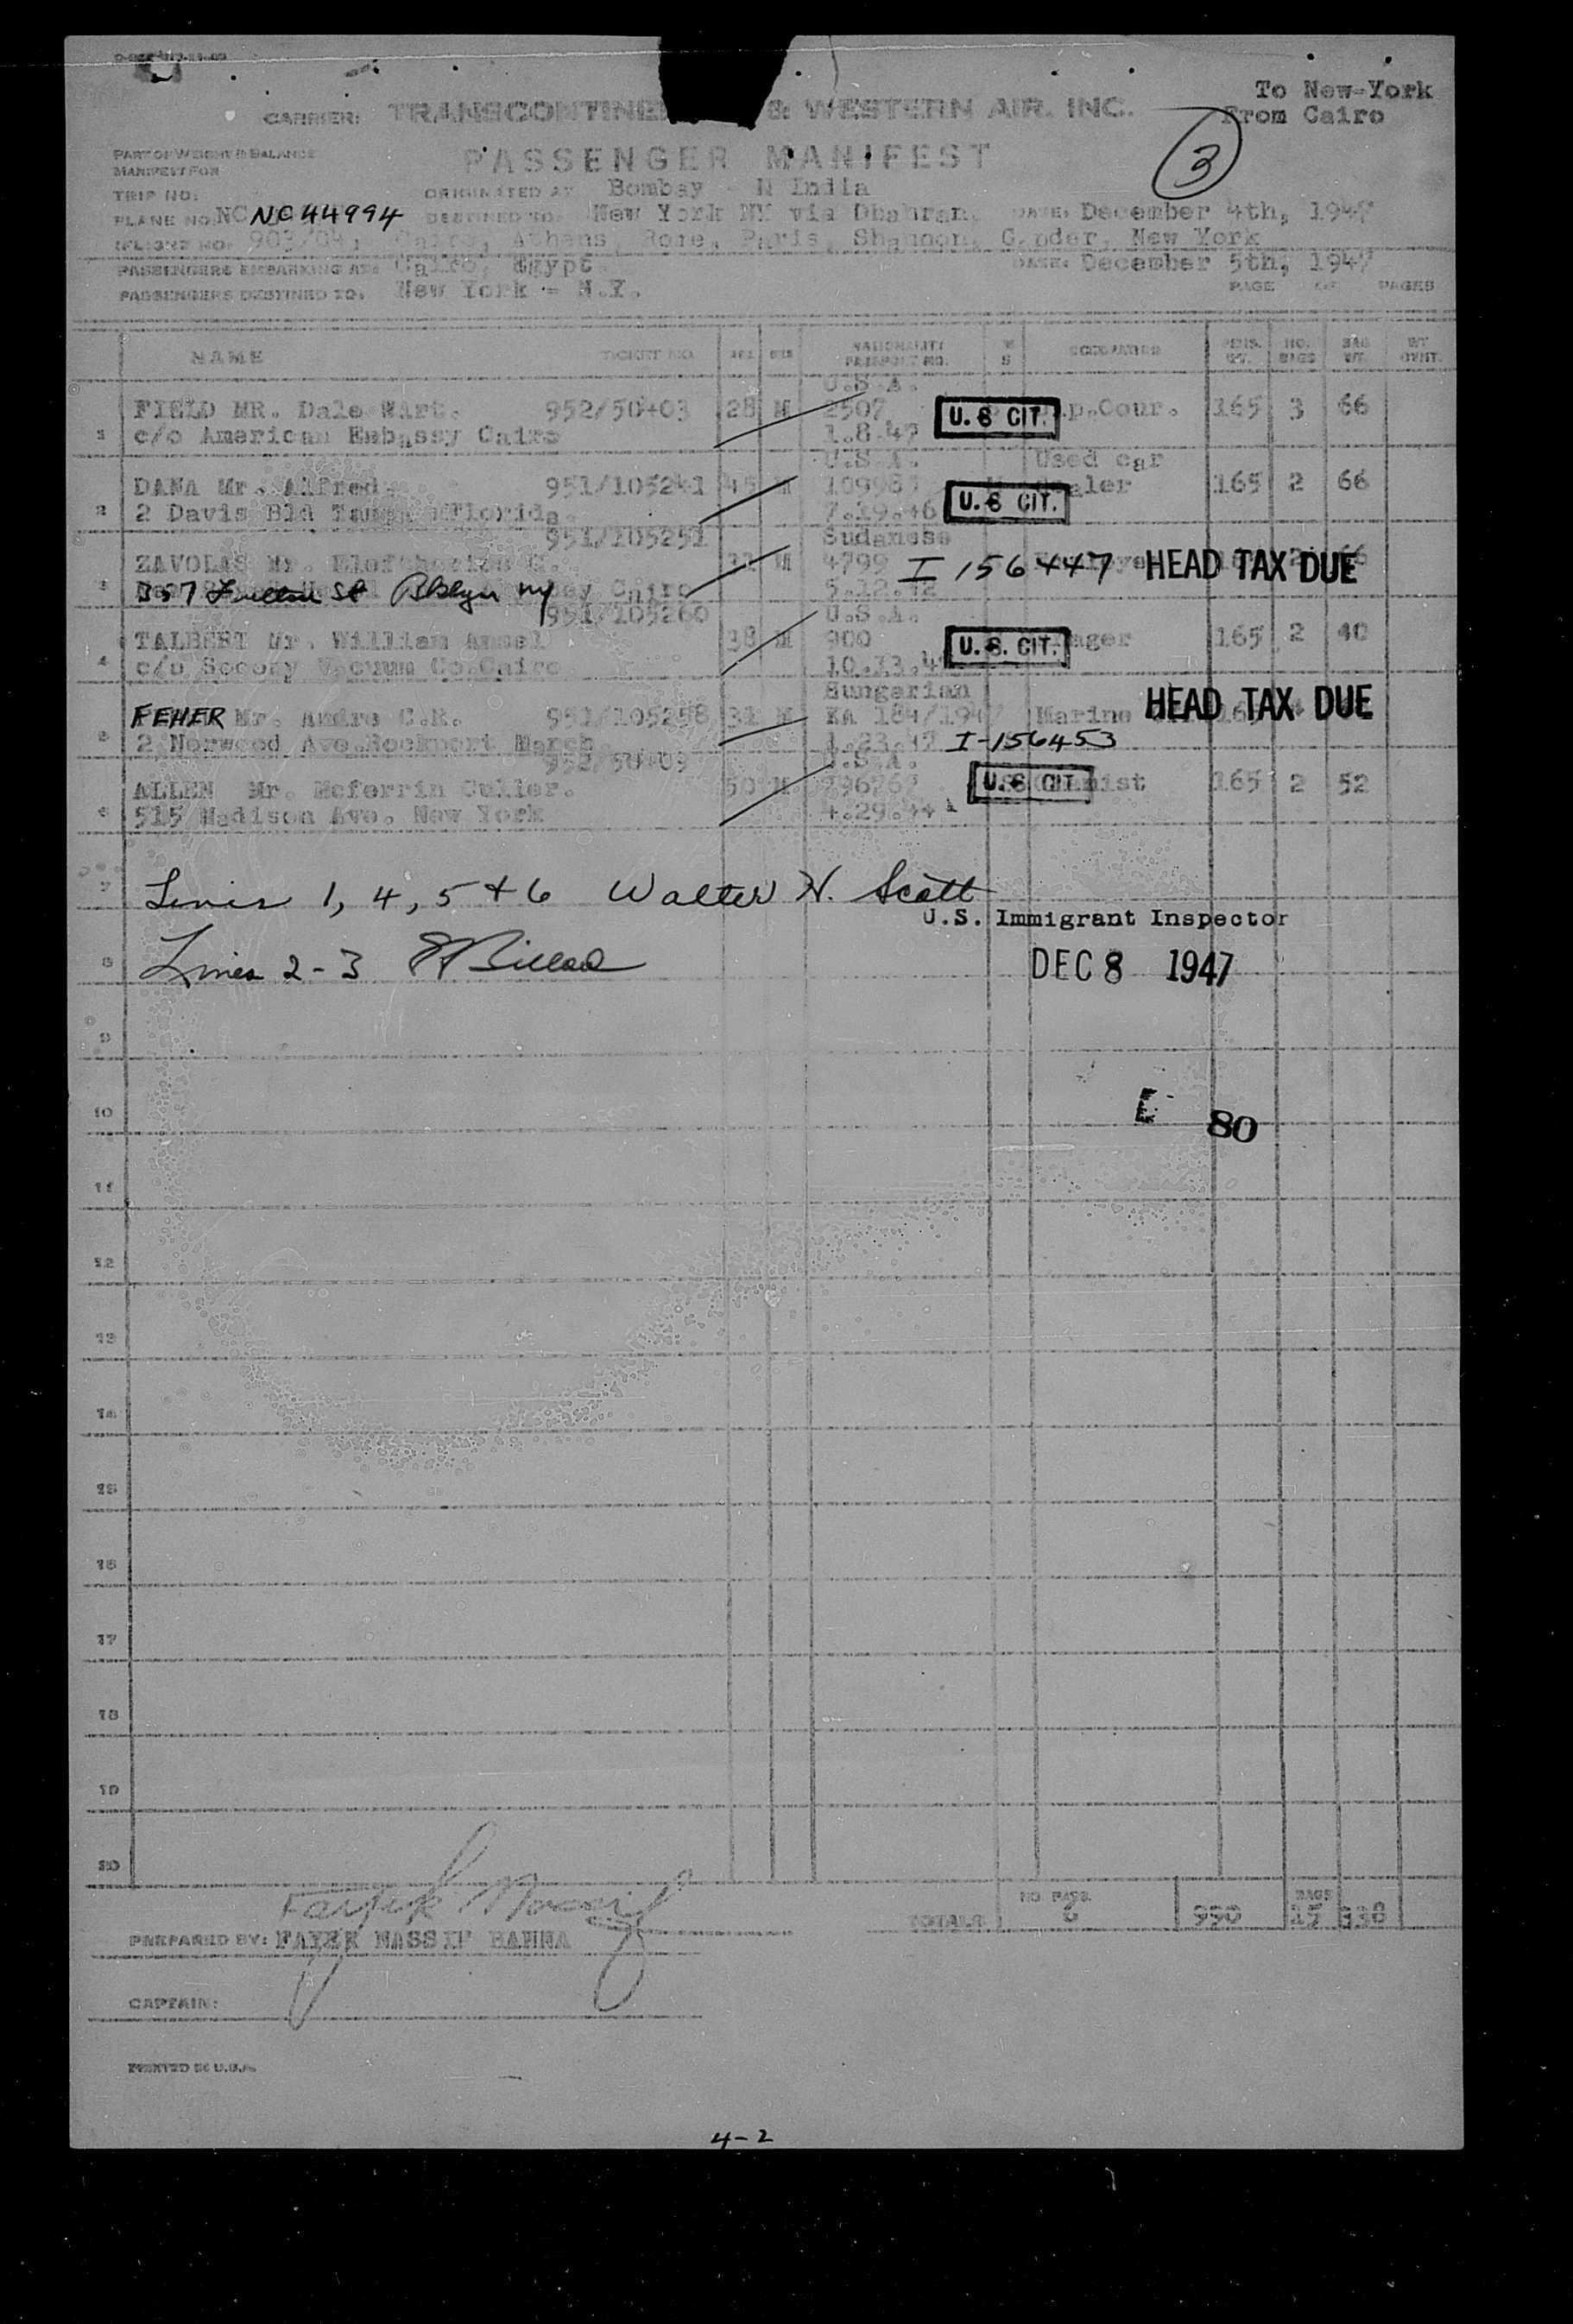 To New-York
CARRIER: TRANSCONTINE & WESTERN AIR. INC.
From Cairo
3
PART OF WEIGHT & BALANCE
MANIFEST FOR
PASSENGER MANIFEST
TRIP NO:
ORIGINATED AT Bombay - N India
PLANE NO. NC NC44994 DESTINED TO: New York NY via Dhahran, DATE: December 4th, 1947
FLIGHT NO. 903/04, Cairo, Athens, Rome, Paris, Shannon, Gander, New York
PASSENGERS EMBARKING AT: Cairo, Egypt. DATE: December 5th, 1947
PASSENGERS DESTINED TO: New York - N.Y. PAGE OF PAGES
NAME TICKET NO. AGE SEX NATIONALITY PASSPORT NO. M S OCCUPATION PERS. WT. NO. BAGS BAG WT. WT OVHT.
U.S.A.
FIELD MR. Dale 952/50403 28 M 2507 U. S CIT. p.Cour. 165 3 66
1 c/o American Embassy Cairo 1.8.47
U.S.A. Used car
DANA Mr. Alfred. 951/105241 45 M U. S CIT. aler 165 2 66
2 2 Davis Bld Florida. 7.19.46
951/105251 Sudanese
ZAVOLAS Mr. G. M 4799 I 156447 HEAD TAX DUE
3 357 St Bklyn ny Cairo 5.12.42
951/105260 U.S.A.
TALBERT Mr. William Ansel 38 M 900 U. S. CIT. ager 165 2 40
4 c/o Socony Vacuum Co. Cairo 10.13.4
Hungarian
FEHER Mr. Andre C.R. 951/105258 31 M KA 184/1947 Marine HEAD TAX DUE
5 2 Norwood Ave. Rockport 1.23.47 I-156453
952/50409 U.S.A.
ALLEN Mr. Mcferrin Culler. 50 M U. S CIT. mist 165 2 52
6 515 Madison Ave. New York 4.29.44
7 Lines 1, 4, 5 + 6 Walter W. Scott
U.S. Immigrant Inspector
8 Lines 2-3
DEC 8 1947
9
10
80
11
12
13
14
15
16
17
18
19
20
TOTALS NO. PASS. 6 990 BAGS 15 338
PREPARED BY: FAYEK NASSIF HANNA
CAPTAIN:
PRINTED IN U.S.A.
4-2